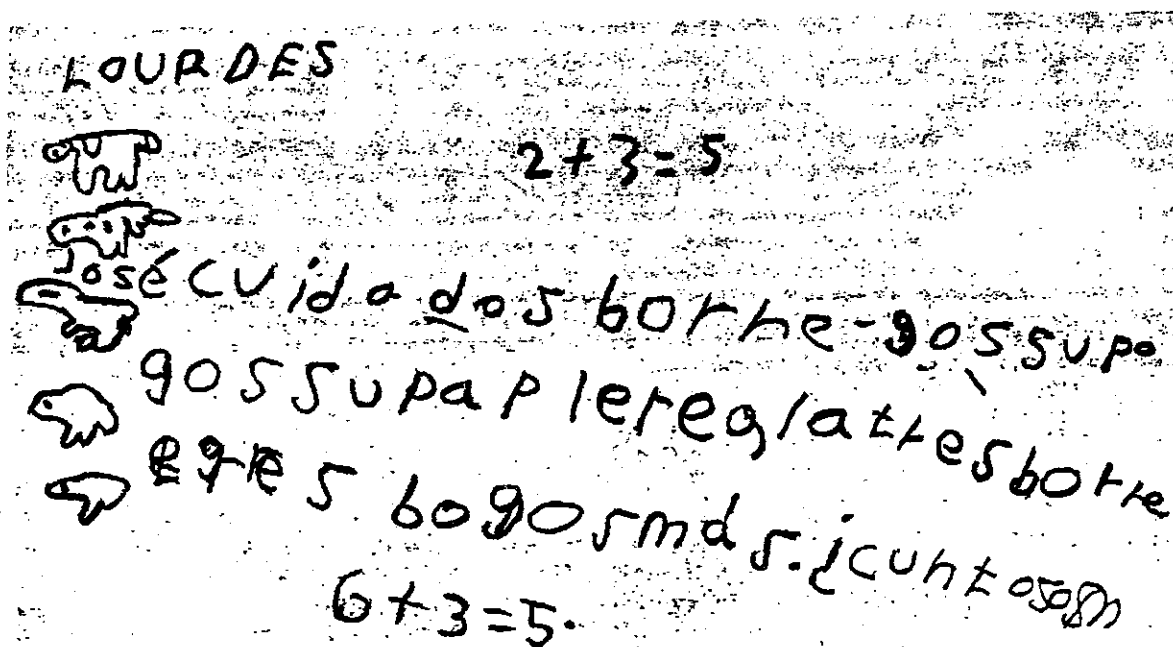 LOURDES
2+3=5
José cuida dos borre-gos supo
gos supap lereglatres borre
egres bogosmds.icuntos
6+3=5.